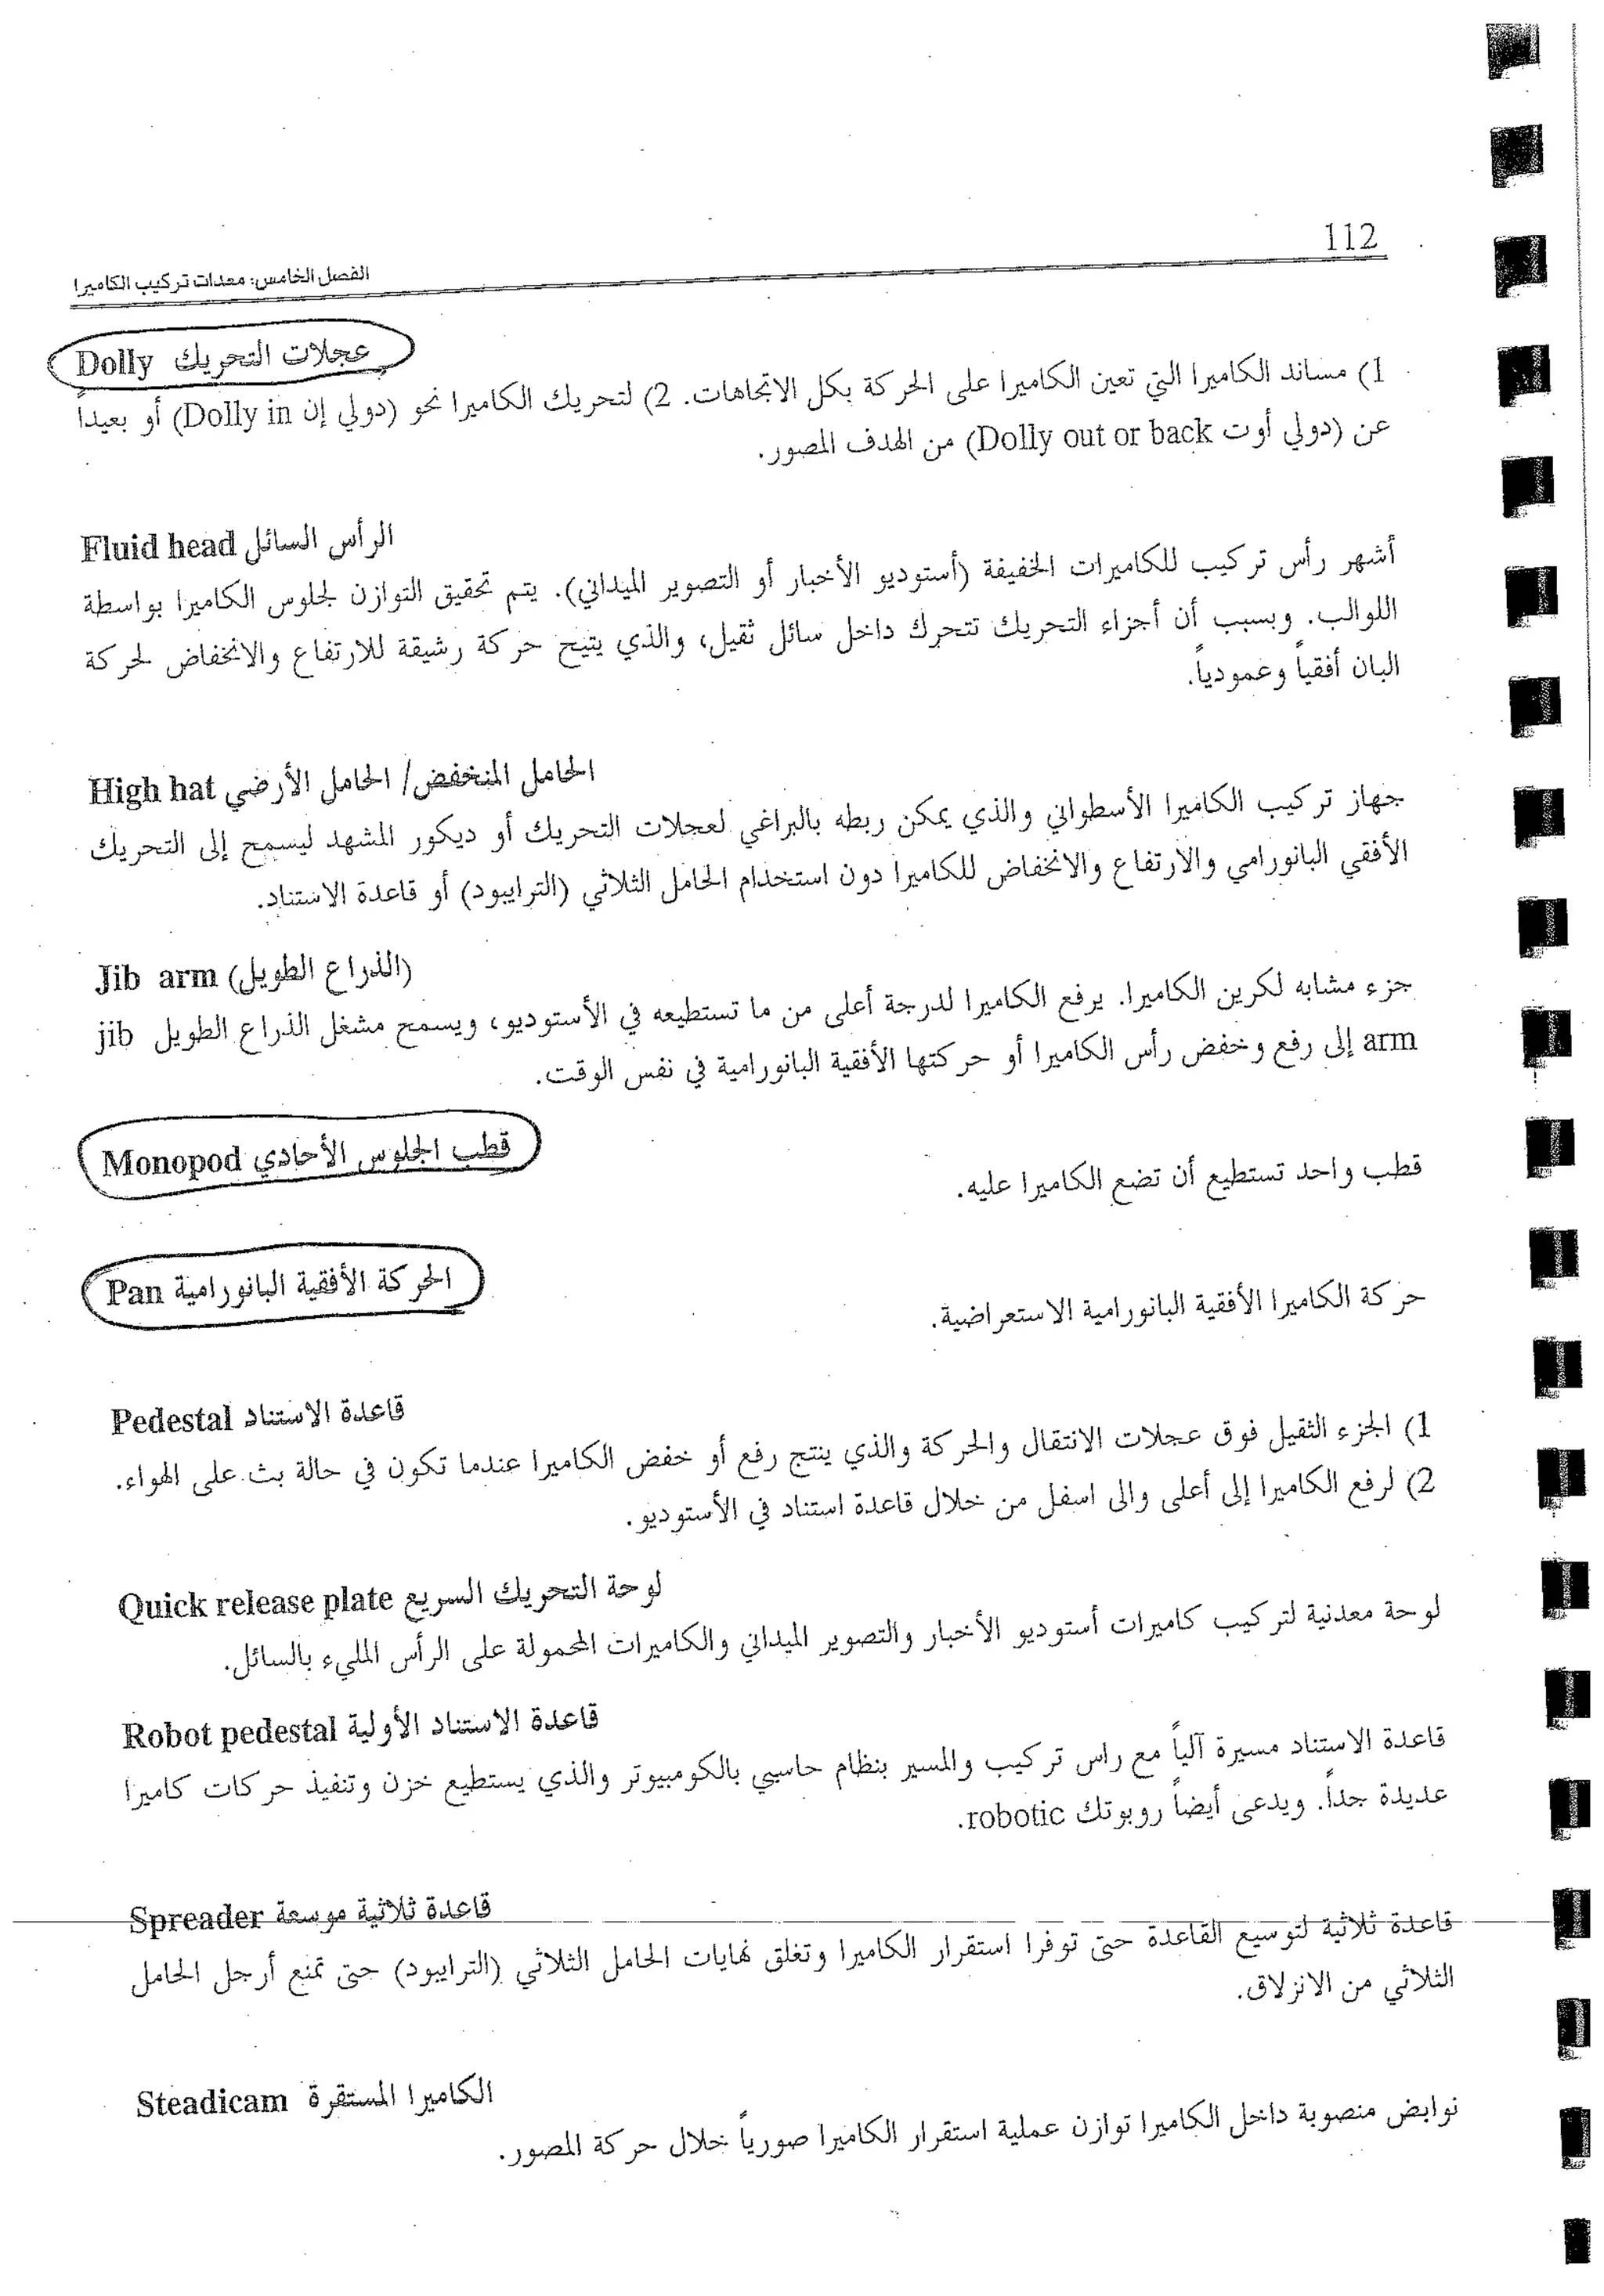 112
الفصل الخامس: معدات تركيب الكاميرا
عجلات التحريك Dolly
1) مساند الكاميرا التي تعين الكاميرا على الحركة بكل الاتجاهات. 2) لتحريك الكاميرا نحو (دولي إن Dolly in) أو بعيداً
عن (دولي أوت Dolly out or back) من الهدف المصور.
الرأس السائل Fluid head
أشهر رأس تركيب للكاميرات الخفيفة (أستوديو الأخبار أو التصوير الميداني). يتم تحقيق التوازن لجلوس الكاميرا بواسطة
اللوالب. وبسبب أن أجزاء التحريك تتحرك داخل سائل ثقيل، والذي يتيح حركة رشيقة للارتفاع والانخفاض لحركة
البان أفقياً وعمودياً.
الحامل المنخفض/ الحامل الأرضي High hat
جهاز تركيب الكاميرا الأسطواني والذي يمكن ربطه بالبراغي لعجلات التحريك أو ديكور المشهد ليسمح إلى التحريك
الأفقي البانورامي والارتفاع والانخفاض للكاميرا دون استخدام الحامل الثلاثي (الترايبود) أو قاعدة الاستناد.
(الذراع الطويل) Jib arm
جزء مشابه لكرين الكاميرا. يرفع الكاميرا لدرجة أعلى من ما تستطيعه في الأستوديو، ويسمح مشغل الذراع الطويل jib
arm إلى رفع وخفض رأس الكاميرا أو حركتها الأفقية البانورامية في نفس الوقت.
قطب الجلوس الأحادي Monopod
قطب واحد تستطيع أن تضع الكاميرا عليه.
الحركة الأفقية البانورامية Pan
حركة الكاميرا الأفقية البانورامية الاستعراضية.
قاعدة الاستناد Pedestal
1) الجزء الثقيل فوق عجلات الانتقال والحركة والذي ينتج رفع أو خفض الكاميرا عندما تكون في حالة بث على الهواء.
2) لرفع الكاميرا إلى أعلى والى اسفل من خلال قاعدة استناد في الأستوديو.
لوحة التحريك السريع Quick release plate
لوحة معدنية لتركيب كاميرات أستوديو الأخبار والتصوير الميداني والكاميرات المحمولة على الرأس المليء بالسائل.
قاعدة الاستناد الأولية Robot pedestal
قاعدة الاستناد مسيرة آلياً مع راس تركيب والمسير بنظام حاسبي بالكومبيوتر والذي يستطيع خزن وتنفيذ حركات كاميرا
عديدة جداً. ويدعى أيضاً روبوتك robotic.
قاعدة ثلاثية موسعة Spreader
قاعدة ثلاثية لتوسيع القاعدة حتى توفرا استقرار الكاميرا وتغلق نهايات الحامل الثلاثي (الترايبود) حتى تمنع أرجل الحامل
الثلاثي من الانزلاق.
الكاميرا المستقرة Steadicam
نوابض منصوبة داخل الكاميرا توازن عملية استقرار الكاميرا صورياً خلال حركة المصور.